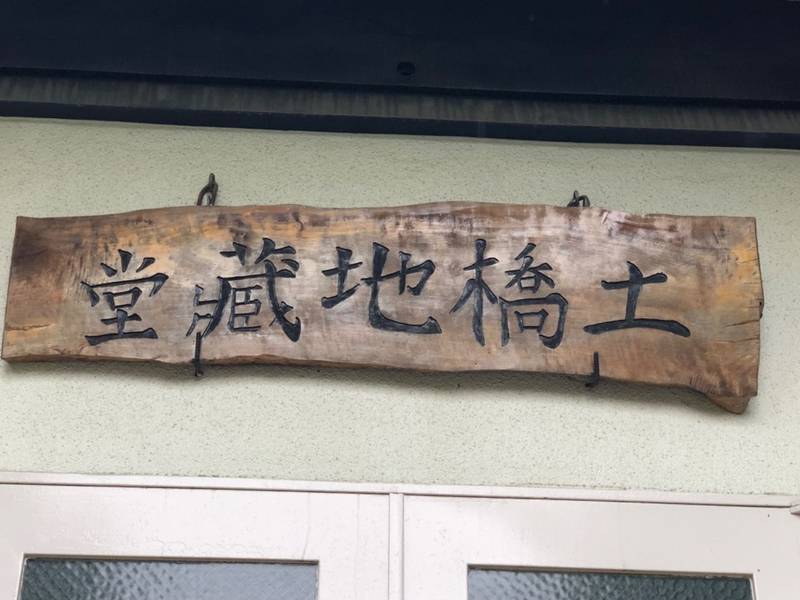 土橋地蔵堂